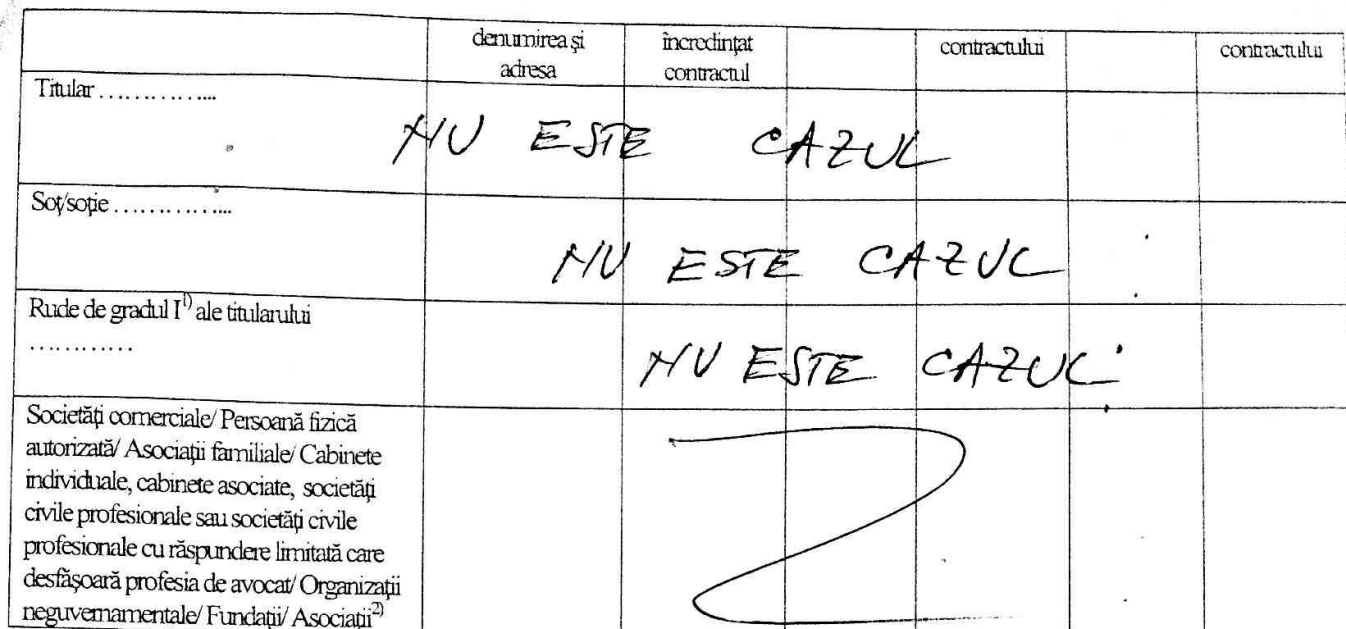 denumirea şi
adresa
încredinţat
contractul
contractului
contractului
Titular ...............
NU ESTE CAZUL
Soţ/soţie ...............
NU ESTE CAZUL
Rude de gradul I1) ale titularului
............
NU ESTE CAZUL
Societăţi comerciale/ Persoană fizică
autorizată/ Asociaţii familiale/ Cabinete
individuale, cabinete asociate, societăţi
civile profesionale sau societăţi civile
profesionale cu răspundere limitată care
desfăşoară profesia de avocat/ Organizaţii
neguvernamentale/ Fundaţii/ Asociaţii2)